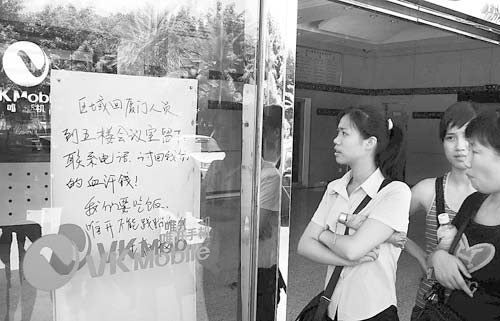 VK Mobile
区域回厦门人员
到五楼会议室留下
联系电话,讨回我们
的血汗钱!
我们要吃饭、
唯开不能跑
唯开手机
VK Mobile